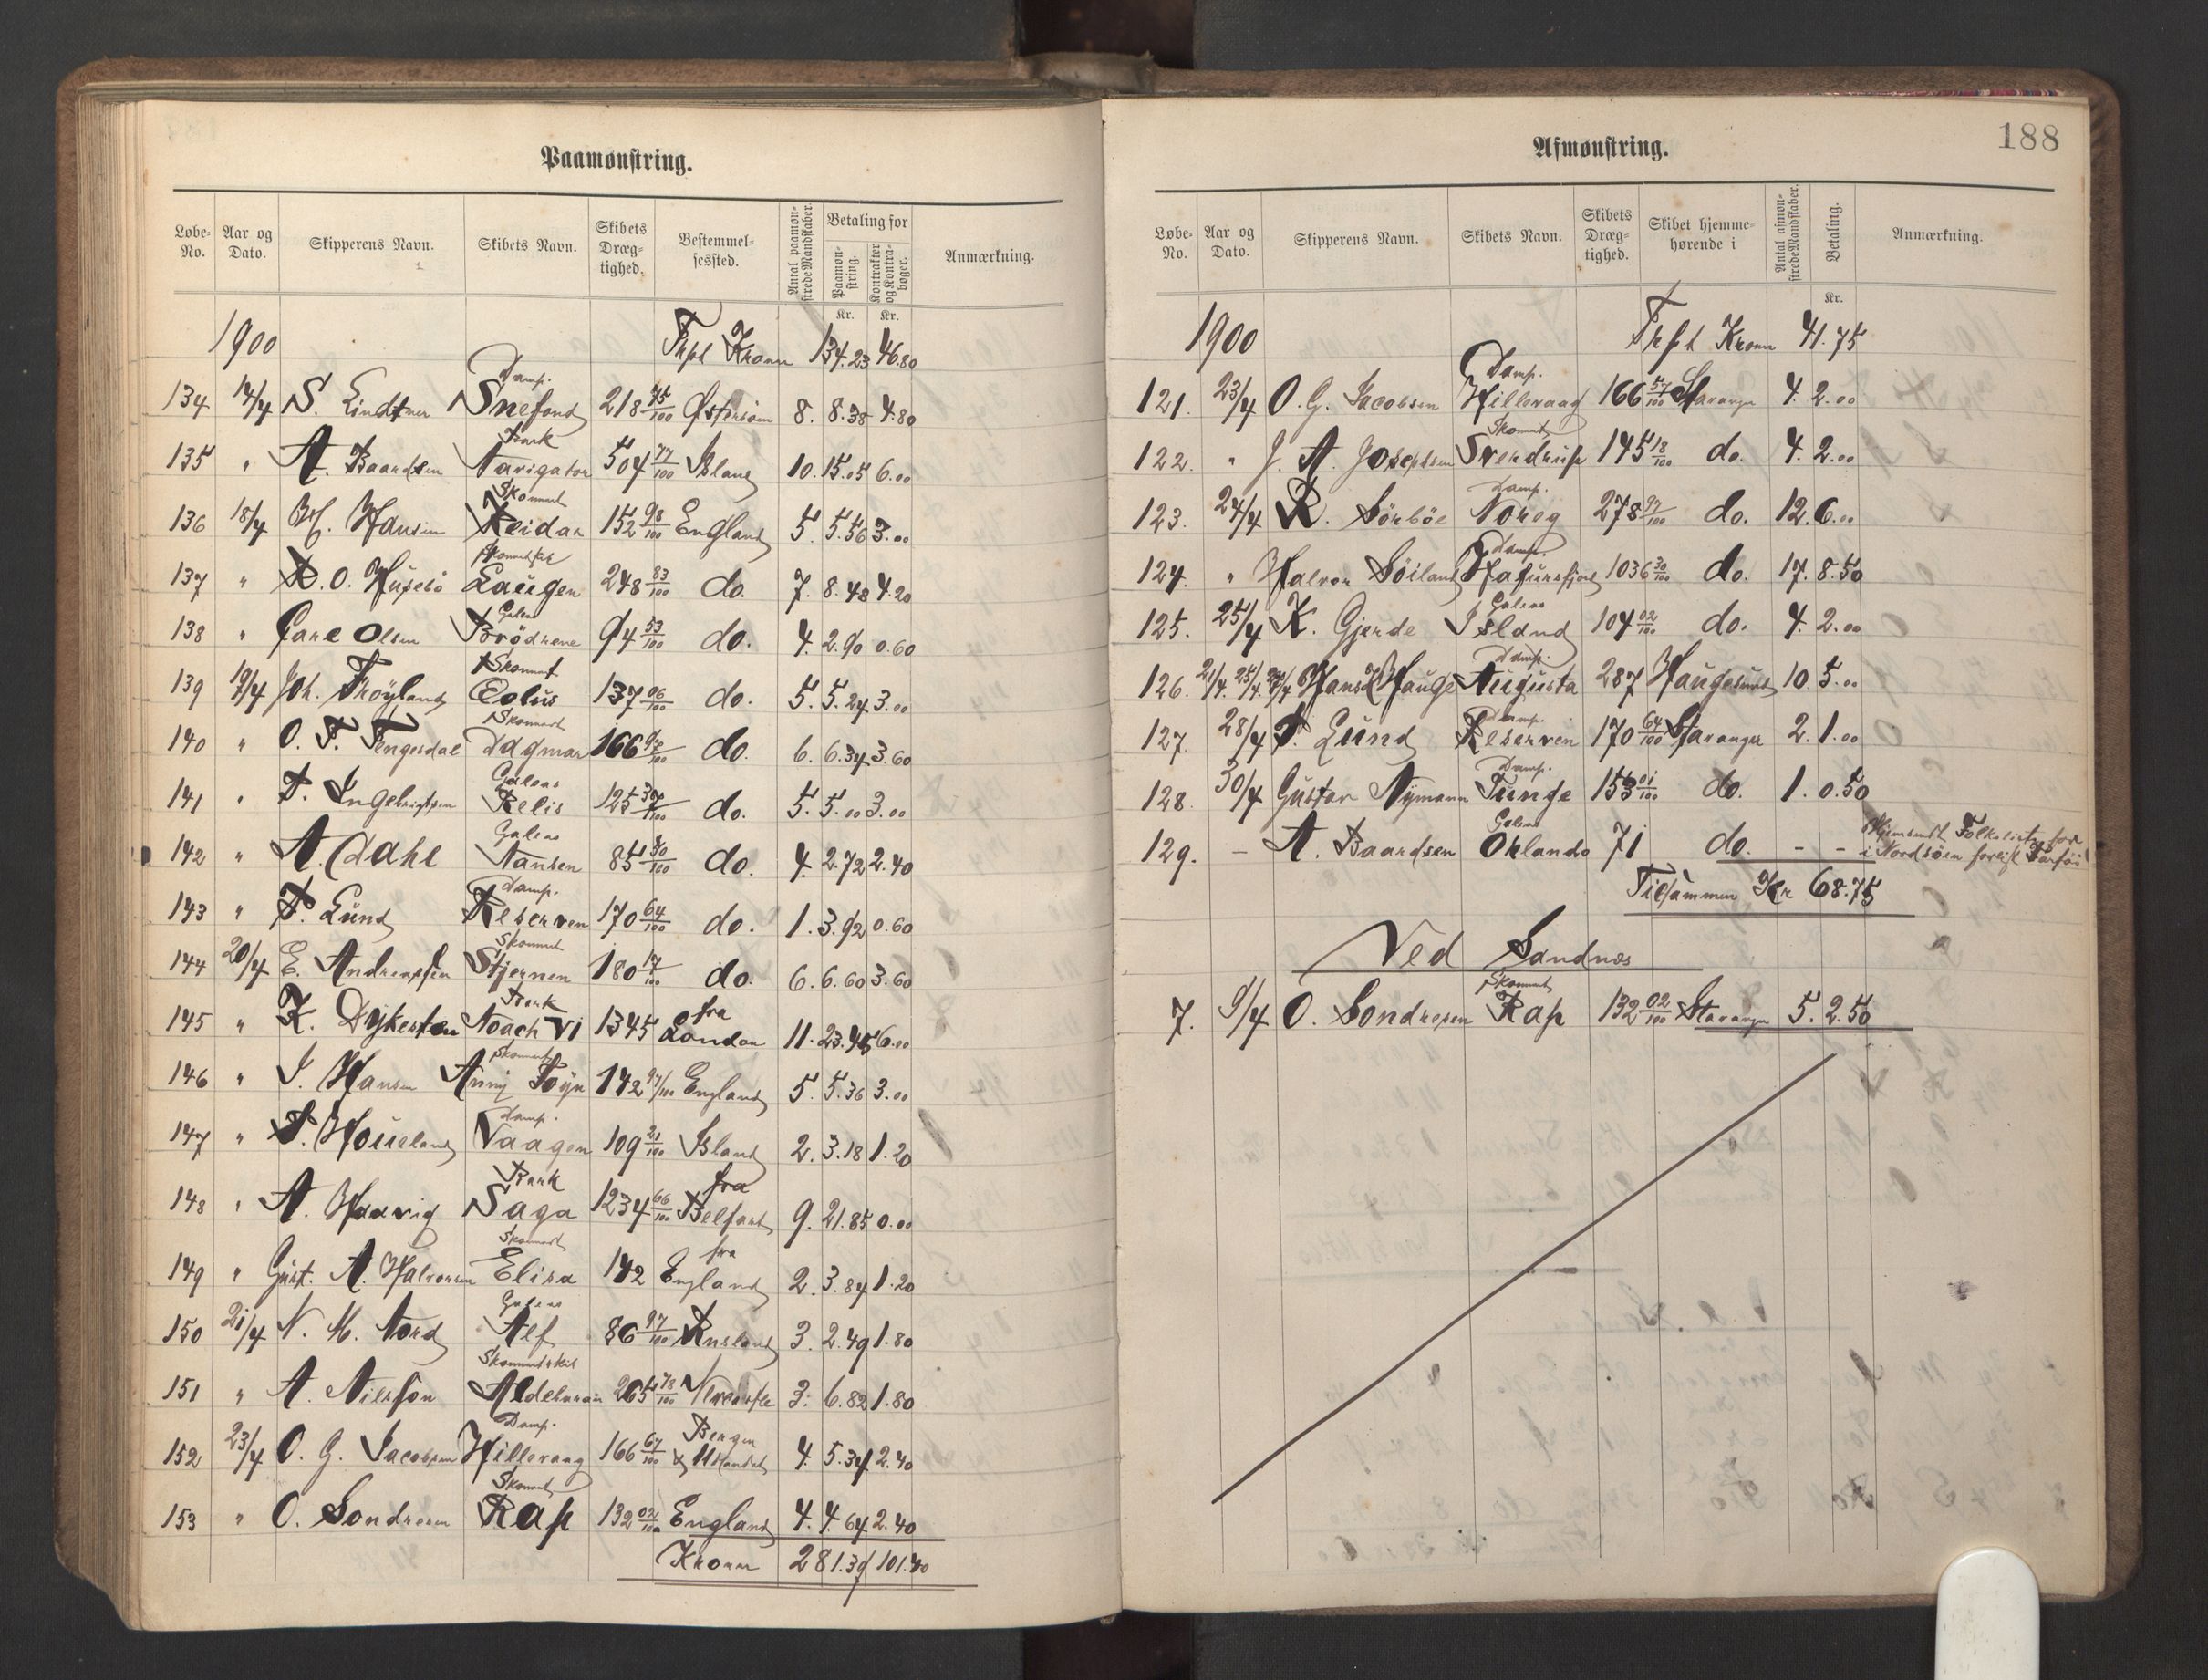 Paamønstring.
Løbe-No. Aar og Dato. Skipperens Navn. Skibets Navn. Skibets Dræg-tighed. Bestemmel-sessted. Antal paamøn-strede Mandskaber. Betaling for Paamøn-string. Kontrakter og Kontra-bøger. Anmærkning.
Kr. Kr.
1900 Trpt Kroner 134.23 46.80
134 14/4 S. Lindtner Damp. Snefond 218 45/100 Østersøen 8. 8.38 4.80
135 " A. Baardsen Bark Navigator 504 77/100 Island 10. 15.05 6.00
136 18/4 Hansen Skonnert Reidar 152 98/100 England 5. 5.56 3.00
137 " R. O. Husebö Laugen 248 83/100 do. 7. 8.48 4.20
138 " Olsen Galeas Brödrene 94 53/100 do. 4. 2.90 0.60
139 19/4 Joh. Tröyland Skonnert Eolus 137 06/100 do. 5. 5.24 3.00
140 " O. T. Tengesdal Skonnert Dagmar 166 do. 6. 6.34 3.60
141 " T. Ingebrigtsen Galeas Relis 125 do. 5. 5.00 3.00
142 " A. Dahl Galeas Nansen 85 80/100 do. 4. 2.72 2.40
143 " T. Lund Damp. Reserven 170 64/100 do. 1. 3.92 0.60
144 20/4 E. Andreassen Skonnert Stjernen 180 17/100 do. 6. 6.60 3.60
145 " K. Dykesten Bark Noach VI 1345 fra London 11. 23.45 6.00
146 " J. Hansen Skonnert Anny 142 97/100 England 5. 5.36 3.00
147 " T. Houeland Damp. Vaagen 109 21/100 Island 2. 3.18 1.20
148 " A. Haavig Bark Saga 1234 66/100 fra Belfast 9. 21.85 0.00
149 " Gust. A. Halvorsen Skonnert Elisa 142 fra England 2. 3.84 1.20
150 21/4 N. M. Nord Galeas Alf 86 97/100 Rusland 3. 2.49 1.80
151 " A. Nilssön Skonnertskib Aldebaran 265 78/100 Newcastle 3. 6.82 1.80
152 23/4 O. G. Jacobsen Damp. Hillevaag 166 67/100 Bergen & 4. 5.34 2.40
153 " O. Sondresen Skonnert Rap 132 02/100 England 4. 4.64 2.40
Kroner 281.39 101.40
Afmønstring. 188
Løbe-No. Aar og Dato. Skipperens Navn. Skibets Navn. Skibets Dræg-tighed. Skibet hjemme-hørende i Antal afmøn-strede Mandskaber. Betaling. Anmærkning.
Kr.
1900 Trpt Kroner 41.75
121. 23/4 O. G. Jacobsen Damp. Hillevaag 166 57/100 Stavanger 4. 2.00
122. " J. A. Josephsen Skonnert Sverdrup 145 18/100 do. 4. 2.00
123. 24/4 R. Sörböe Damp. Noreg 278 97/100 do. 12. 6.00
124. " Halvor Söiland Damp. Hafursfjord 1036 30/100 do. 17. 8.50
125. 25/4 K. Gjerde Galeas Island 104 02/100 do. 4. 2.00
126. 21/4. 25/4. 27/4 Hans Hauge Damp. Augusta 287 Haugesund 10. 5.00
127. 28/4 T. Lund Damp. Reserven 170 64/100 Stavanger 2. 1.00
128. 30/4 Gustav Nymann Damp. Tunge 153 01/100 do. 1. 0.50
129. - A. Baardsen Galeas Orlando 71 do. - - Hjemsendt Folkeliste for i Nordsöen forlist Fartöi
Tilsammen Kr 68.75
Ved Sandnæs
7. 9/4 O. Sondresen Skonnert Rap 132 02/100 Stavanger 5. 2.50